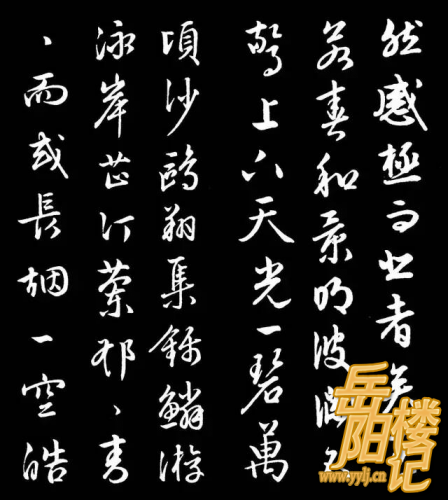 然感極而悲者矣
若春和景明波瀾不
驚上下天光一碧萬
頃沙鷗翔集錦鱗游
泳岸芷汀蘭郁、青
、而或長烟一空皓
岳阳楼记
www.yylj.cn